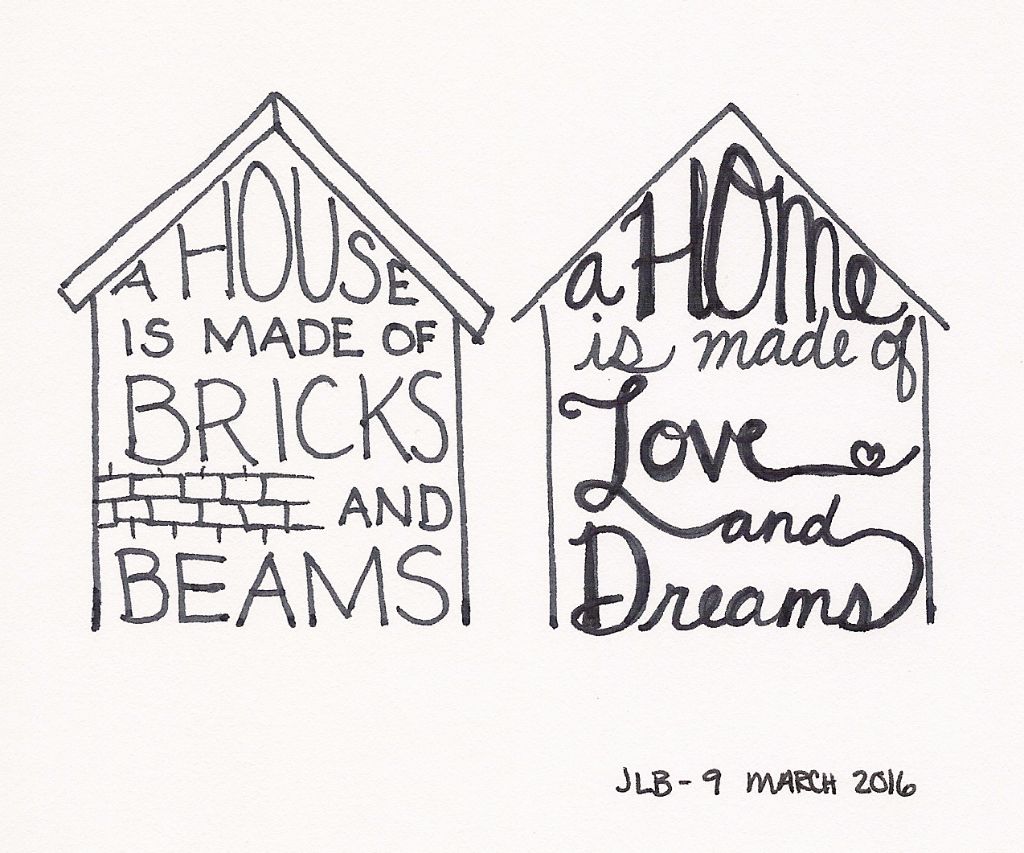 A HOUSE
IS MADE OF
BRICKS
AND
BEAMS
a HOme
is made of
Love
and
Dreams
JLB - 9 MARCH 2016